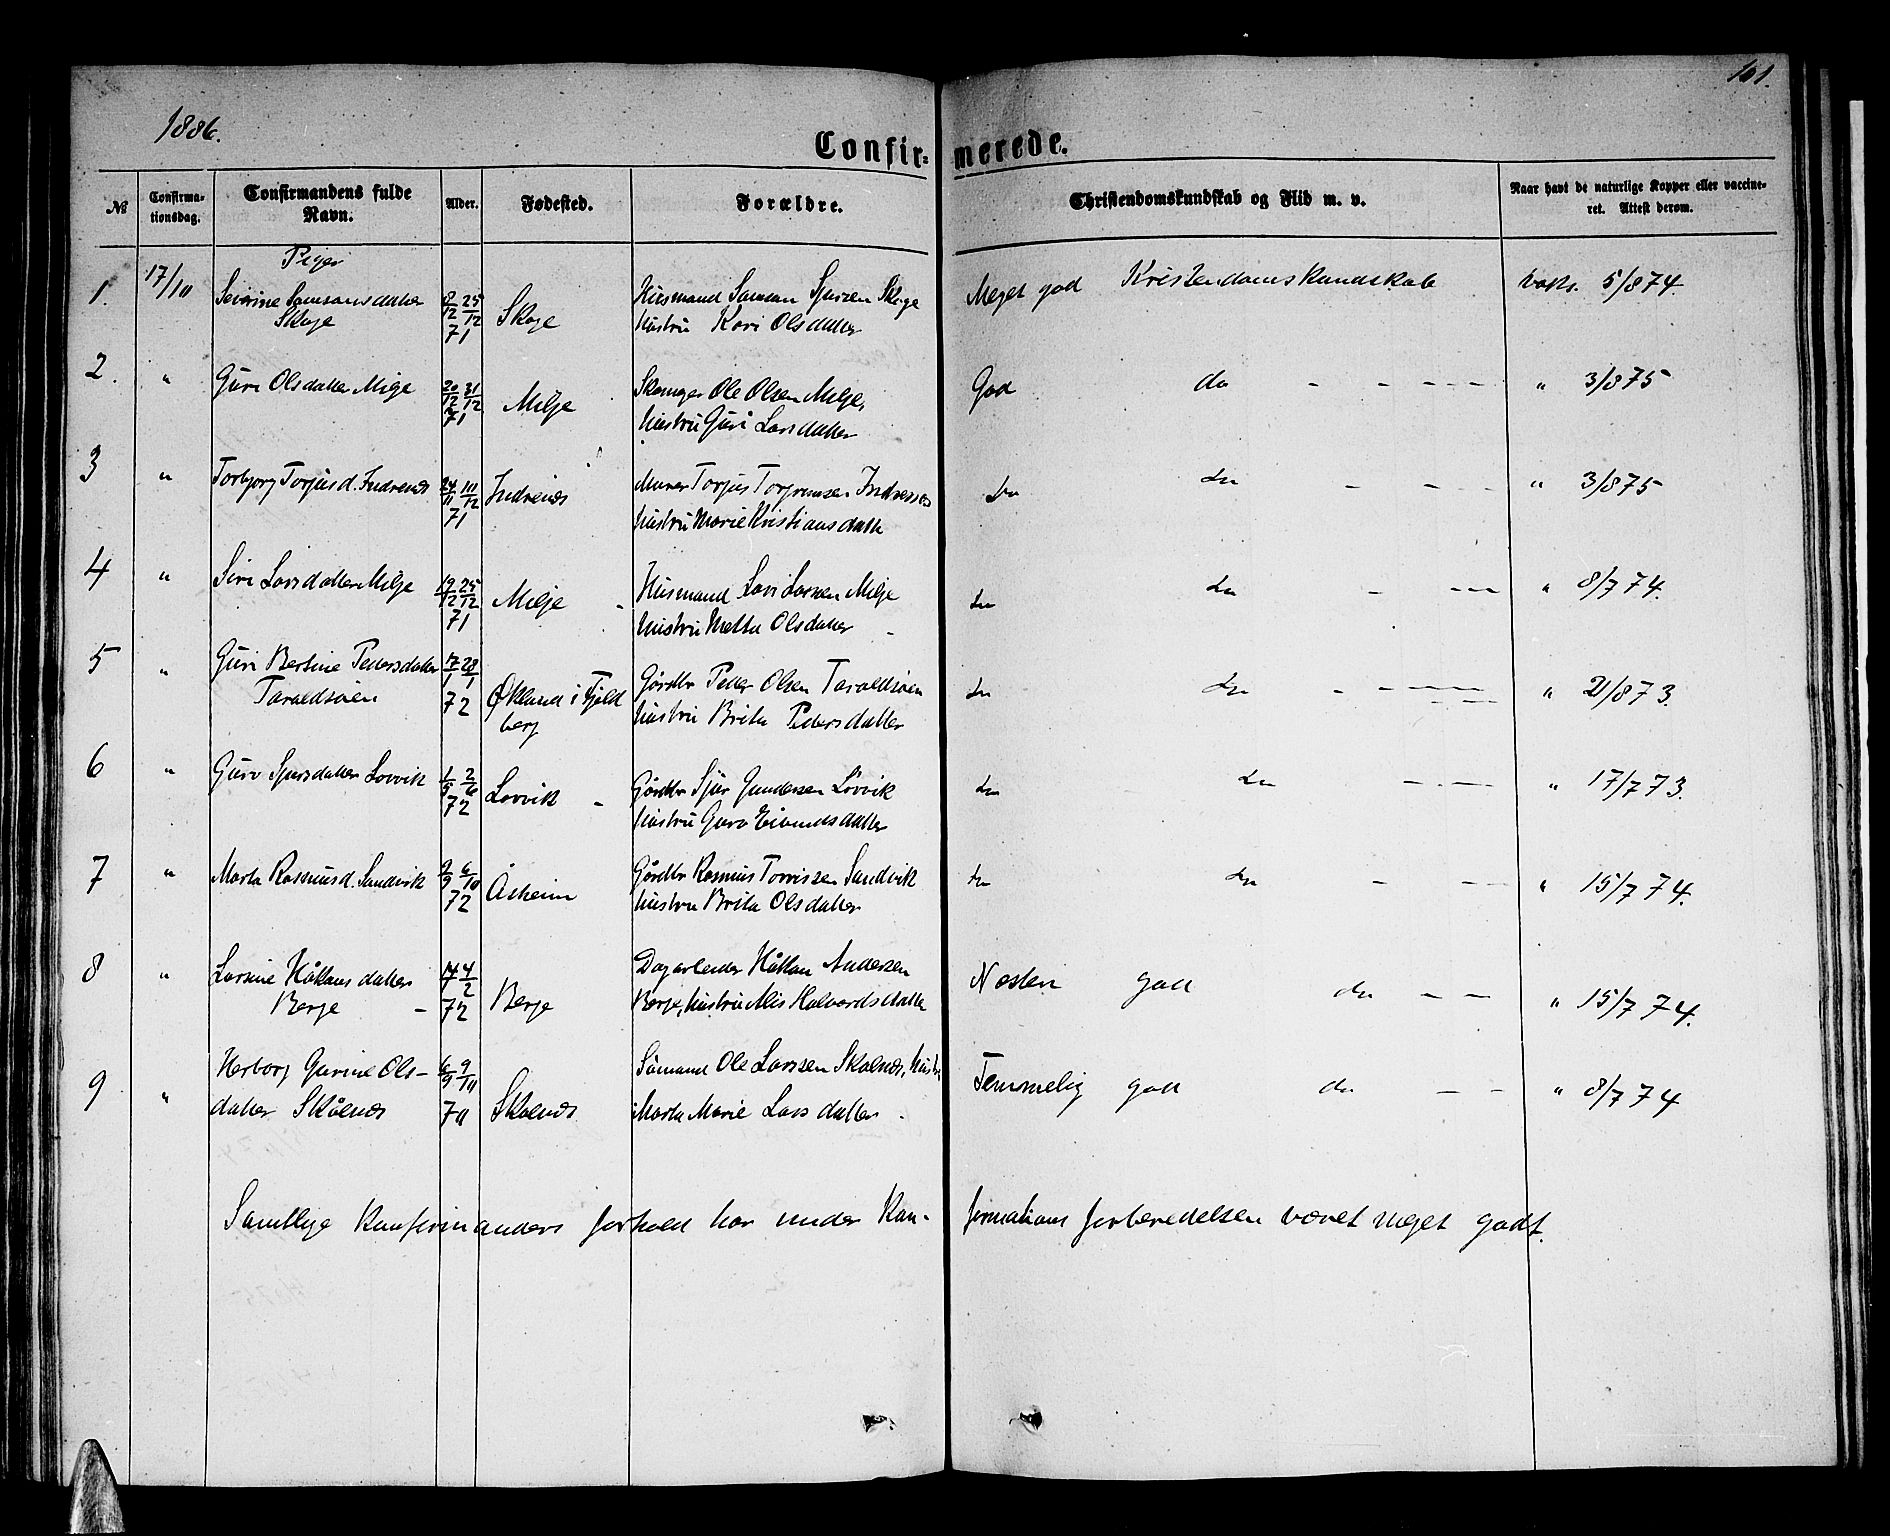 101.
1886.
Confir= merede.
№ Confirma-tionsdag. Confirmandens fulde Navn. Alder. Fødested. Forældre. Christendomskundskab og Flid m. v. Naar havt de naturlige Kopper eller vaccineret. Attest derom.
Piger
1. 17/10 Severine Samsonsdatter Skoge 8/12 25/12 71 Skoge Husmand Samson Sjursen Skoge Hustru Kari Olsdatter Meget god Kristendomskundskab vaks. 5/8 74.
2. " Guri Olsdatter Milje 20/12 31/12 71 Milje Ole Olsen Milje, Hustru Guri Larsdatter God do - - - - - " 3/8 75
3 " Torbjorg Torjusd. Indrenæs 24/11 10/12 71 Indrenæs Murer Torjus Indrenæs Hustru Marie Kristiansdatte do do - - - - " 3/8 75
4 " Siri Larsdatter Milje 19/12 25/12 71 Milje - Husmand Lars Larsen Milje Hustru Metta Olsdatter - do do - - - - " 8/7 74.
5 " Guri Bertine Pedersdatter Taraldsøien 17/1 28/1 72 Økland i Fjeld berg Gårdbr Peder Olsen Taraldsøien Hustru Brita Pedersdatter do do - - - - - " 2/8 73.
6 " Guro Sjursdatter Lovvik 1/5 2/6 72 Lovvik - Gårdbr Sjur Gundersen Lövvik Hustru Guro Eivindsdatter do do - - - " 17/7 73.
7 " Marta Rasmusd. Sandvik 9/9 6/10 72 Åsheim Gårdbr Rasmus Sandvik Hustru Brita Olsdatter do do - - - " 15/7 74.
8 " Larsine Håkonsdatter Berje - 14/1 4/2 72 Berje Dagarbeider Håkon Andersen Berje, Hustru Alis Halvardsdatte Næsten god do - - " 15/7 74.
9 " Herborg Gurine Ols-datter Skålnæs 6/9 9/10 70 Skålnæs Sömand Ole Larssen Skålnæs, Hustru Marta Marie Larsdatter - Temmelig god do - - " 8/7 74
Samtlige Konfirmanders forhold har under Kon- firmations forberedelsen været meget godt.